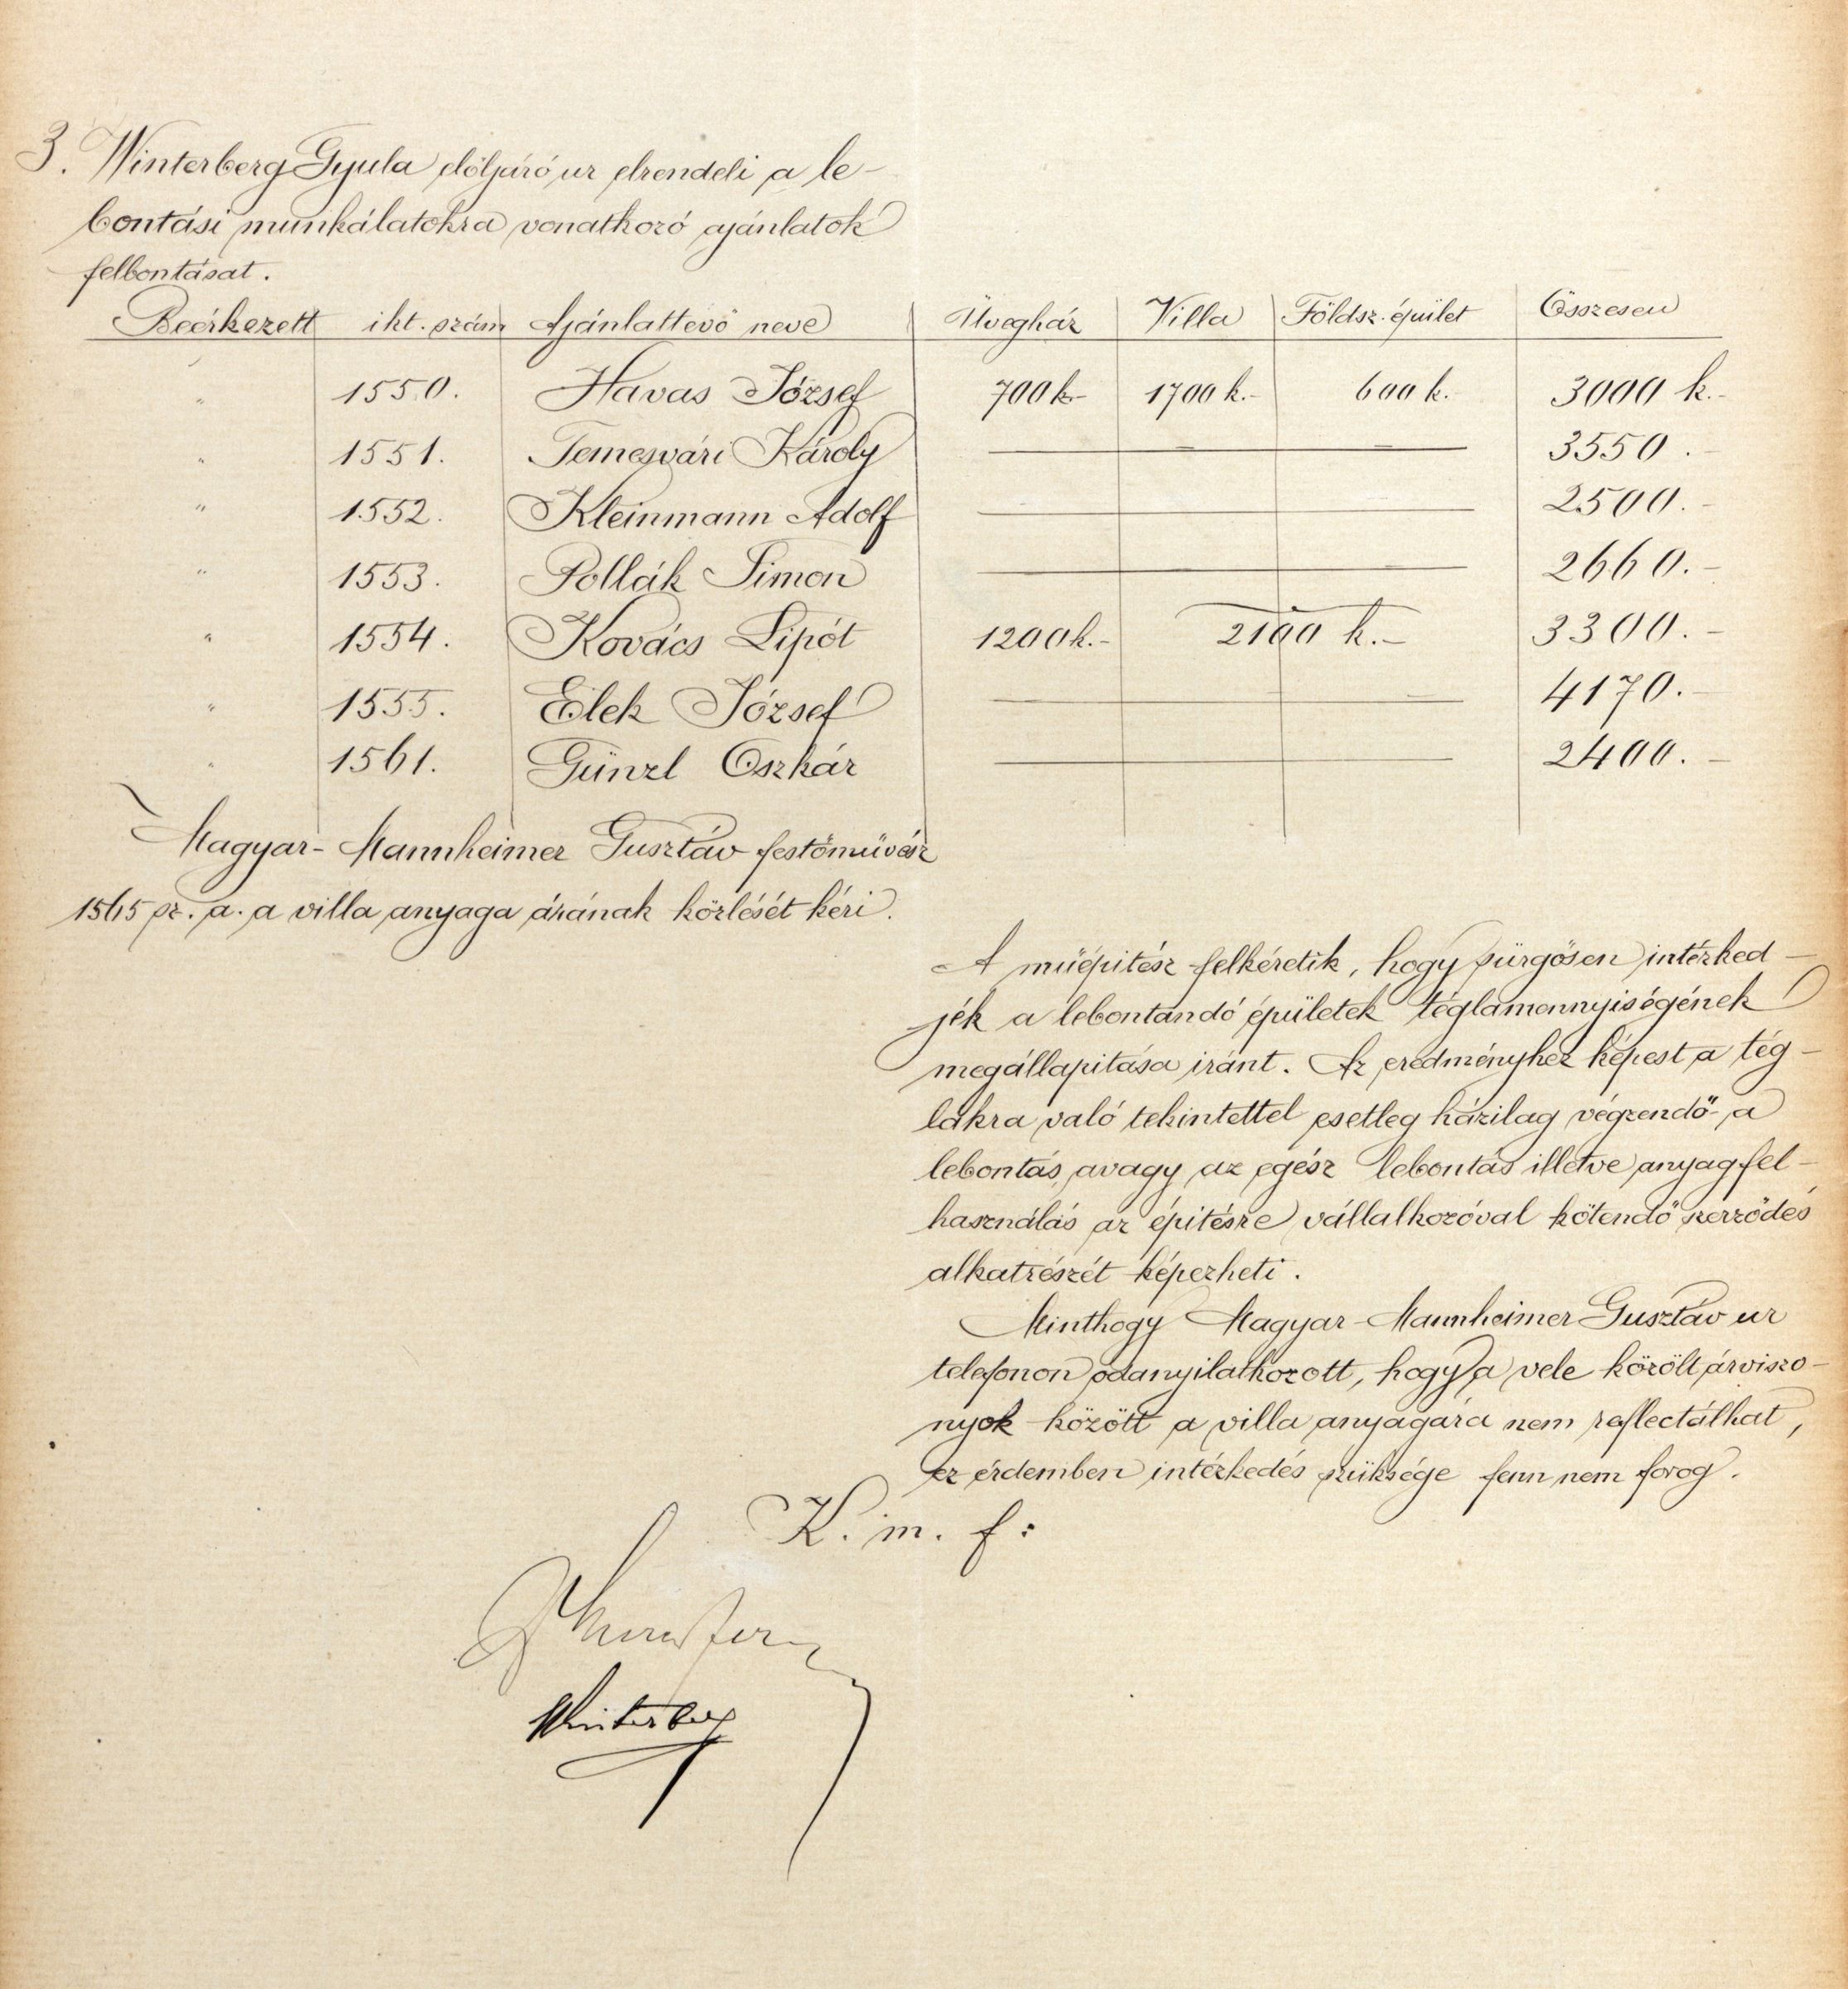 3. Winterberg Gyula elöljáró ur elrendeli a le-
bontási munkálatokra vonatkozó ajánlatok
felbontásat.
Beérkezett ikt. szám Ajánlattevő neve Üvegház Villa Földsz. épület Összesen
" 1550. Havas József 700 k.- 1700 k.- 600 k. 3000 k.-
" 1551. Temesvári Károly 3550.-
" 1552. Kleinmann Adolf 2500.-
" 1553. Pollák Simon 2660.-
" 1554. Kovács Lipót 1200 k.- 2100 k.- 3300.-
" 1555. Elek József 4170.-
" 1561. Günzl Oszkár 2400.-
Magyar-Mannheimer Gusztáv festőművész
1565 sz. a. a villa anyaga árának közlését kéri.
A műépitész felkéretik, hogy sürgősen intézked-
jék a lebontandó épületek téglamennyiségének
megállapitása iránt. Az eredményhez képest a tég-
lákra való tekintettel esetleg házilag végzendő a
lebontás, avagy az egész lebontás illetve anyagfel-
használás az épitésre vállalkozóval kötendő szerződés
alkatrészét képezheti.
Minthogy Magyar-Mannheimer Gusztáv ur
telefonon odanyilatkozott, hogy a vele közölt árviszo-
nyok között a villa anyagára nem reflectálhat,
ez érdemben intézkedés szüksége fenn nem forog.
K. m. f:
Winterberg